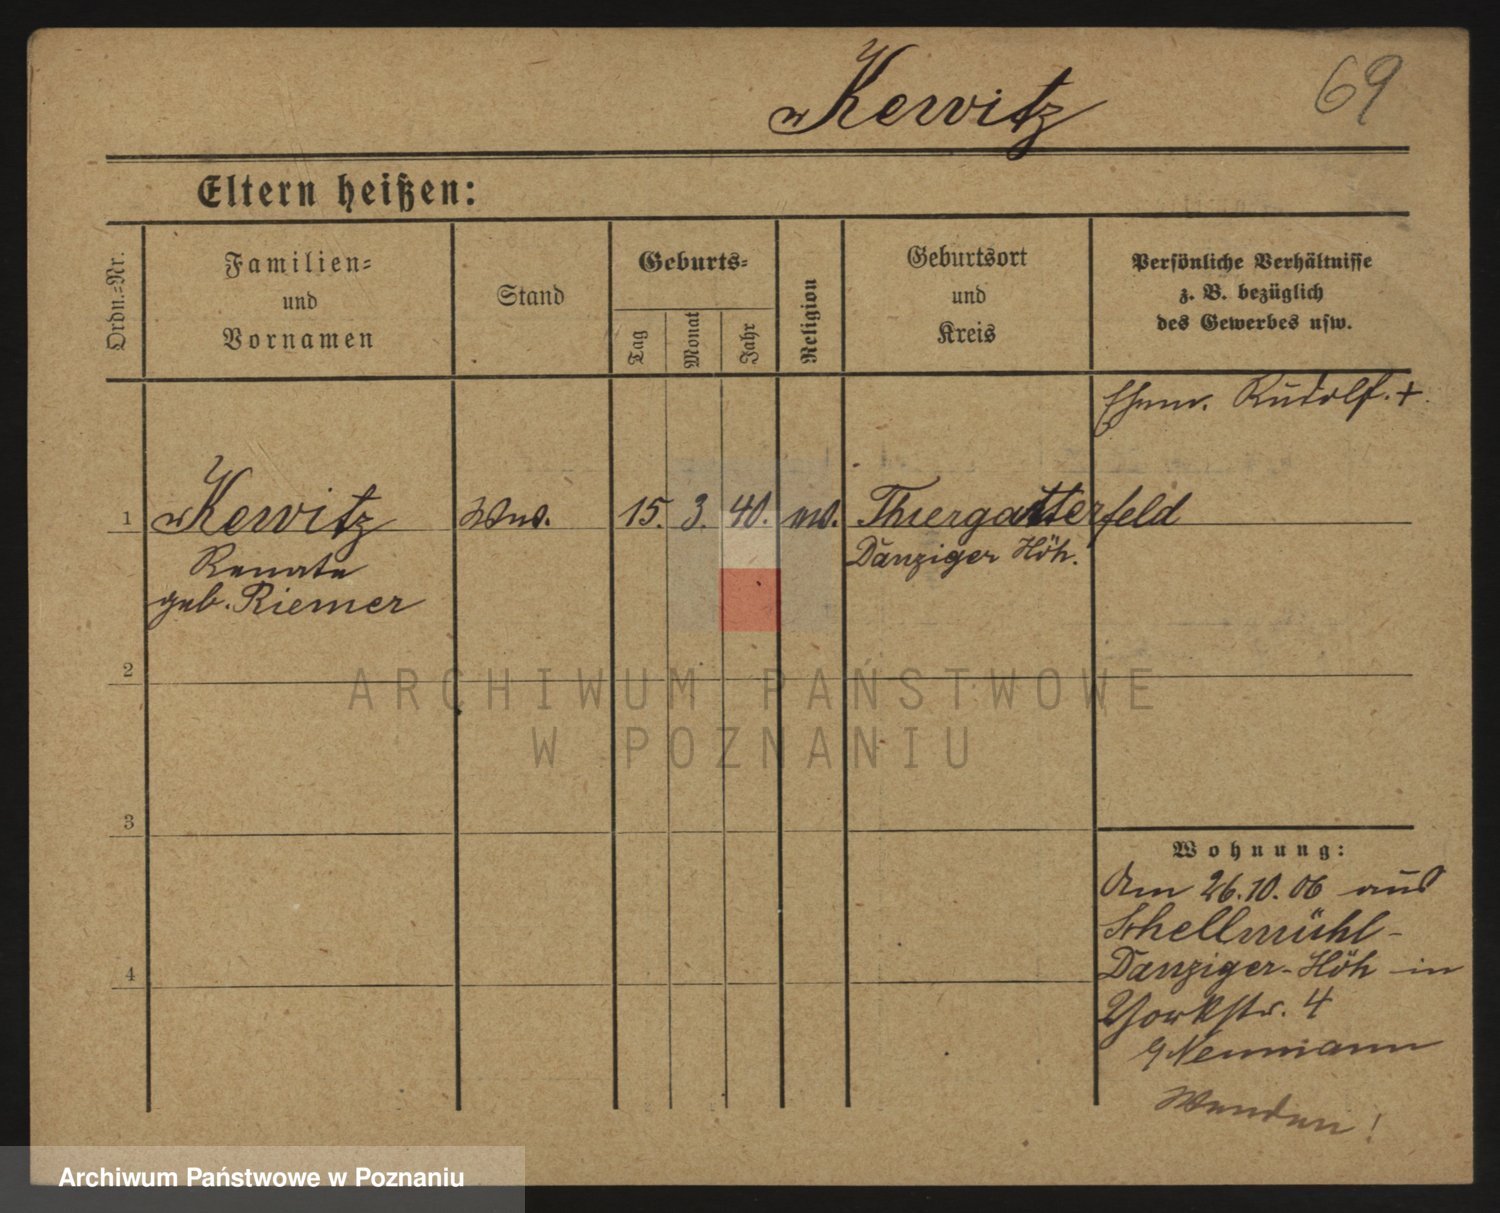 Kewitz
69
Eltern heißen:
Ordn.-Nr.
Familien-
und
Vornamen
Stand
Geburts-
Tag
Monat
Jahr
Religion
Geburtsort
und
Kreis
Persönliche Verhältnisse
z. B. bezüglich
des Gewerbes usw.
Ehem. Rudolf. +
1
Kewitz
Renate
geb. Riemer
Wwe.
15.
3.
40.
Thiergatterfeld
Danziger Höh.
2
ARCHIWUM PAŃSTWOWE
W POZNANIU
3
4
Wohnung:
Am 26.10.06 aus
Schellmühl-
Danziger-Höh in
Yorkstr. 4
Neumann
Wenden!
Archiwum Państwowe w Poznaniu